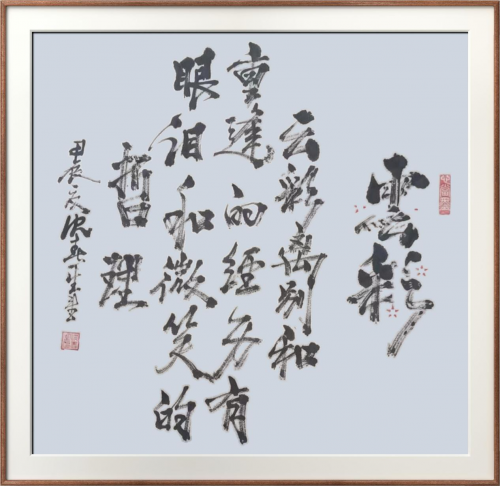 雲彩
云彩離别和
重逢的經有
眼泪和微笑的
哲理
甲辰